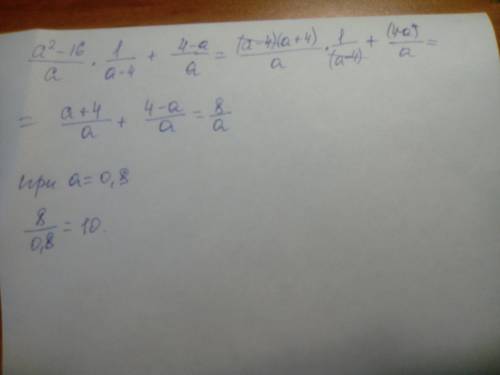 a²-16/a · 1/a-4 + 4-a/a = (a-4)(a+4)/a · 1/(a-4) + (4-a)/a =
= a+4/a + 4-a/a = 8/a
при a=0,8
8/0,8 = 10.